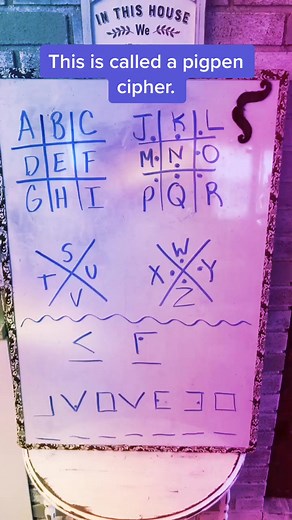 IN THIS HOUSE
We
This is called a pigpen
cipher.
A B C J K L
D E F M N O
G H I P Q R
S W
T U X Y
V Z